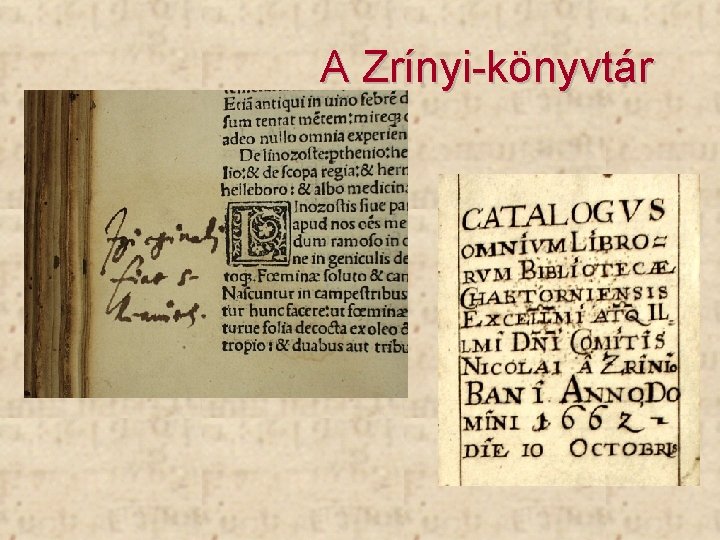 A Zrínyi-könyvtár
Etiā antiqui in uino febrē d
sum tentat mētem: mireq; c
adeo nullo omnia experien
De linozoste: pthenio: he
lio: & de scopa regia: & herm
helleboro: & albo medicina
Linozostis siue pa
apud nos oēs me
dum ramoso in c
ne in geniculis de
toq. Fœminæ soluto & can
Nascuntur in campestribus
tur hunc facere: ut fœminæ
turue folia decocta ex oleo ē
tropio: & duabus aut tribu
fiat
CATALOGVS
OMNIVM LIBRO=
RVM BIBLIOTECÆ
CHAKTORNIENSIS
EXCELLMI ATQ IL
LMI DNI COMITIS
NICOLAI A ZRINIO
BANI. ANNO DO
MINI 1662
DIE 10 OCTOBRIS